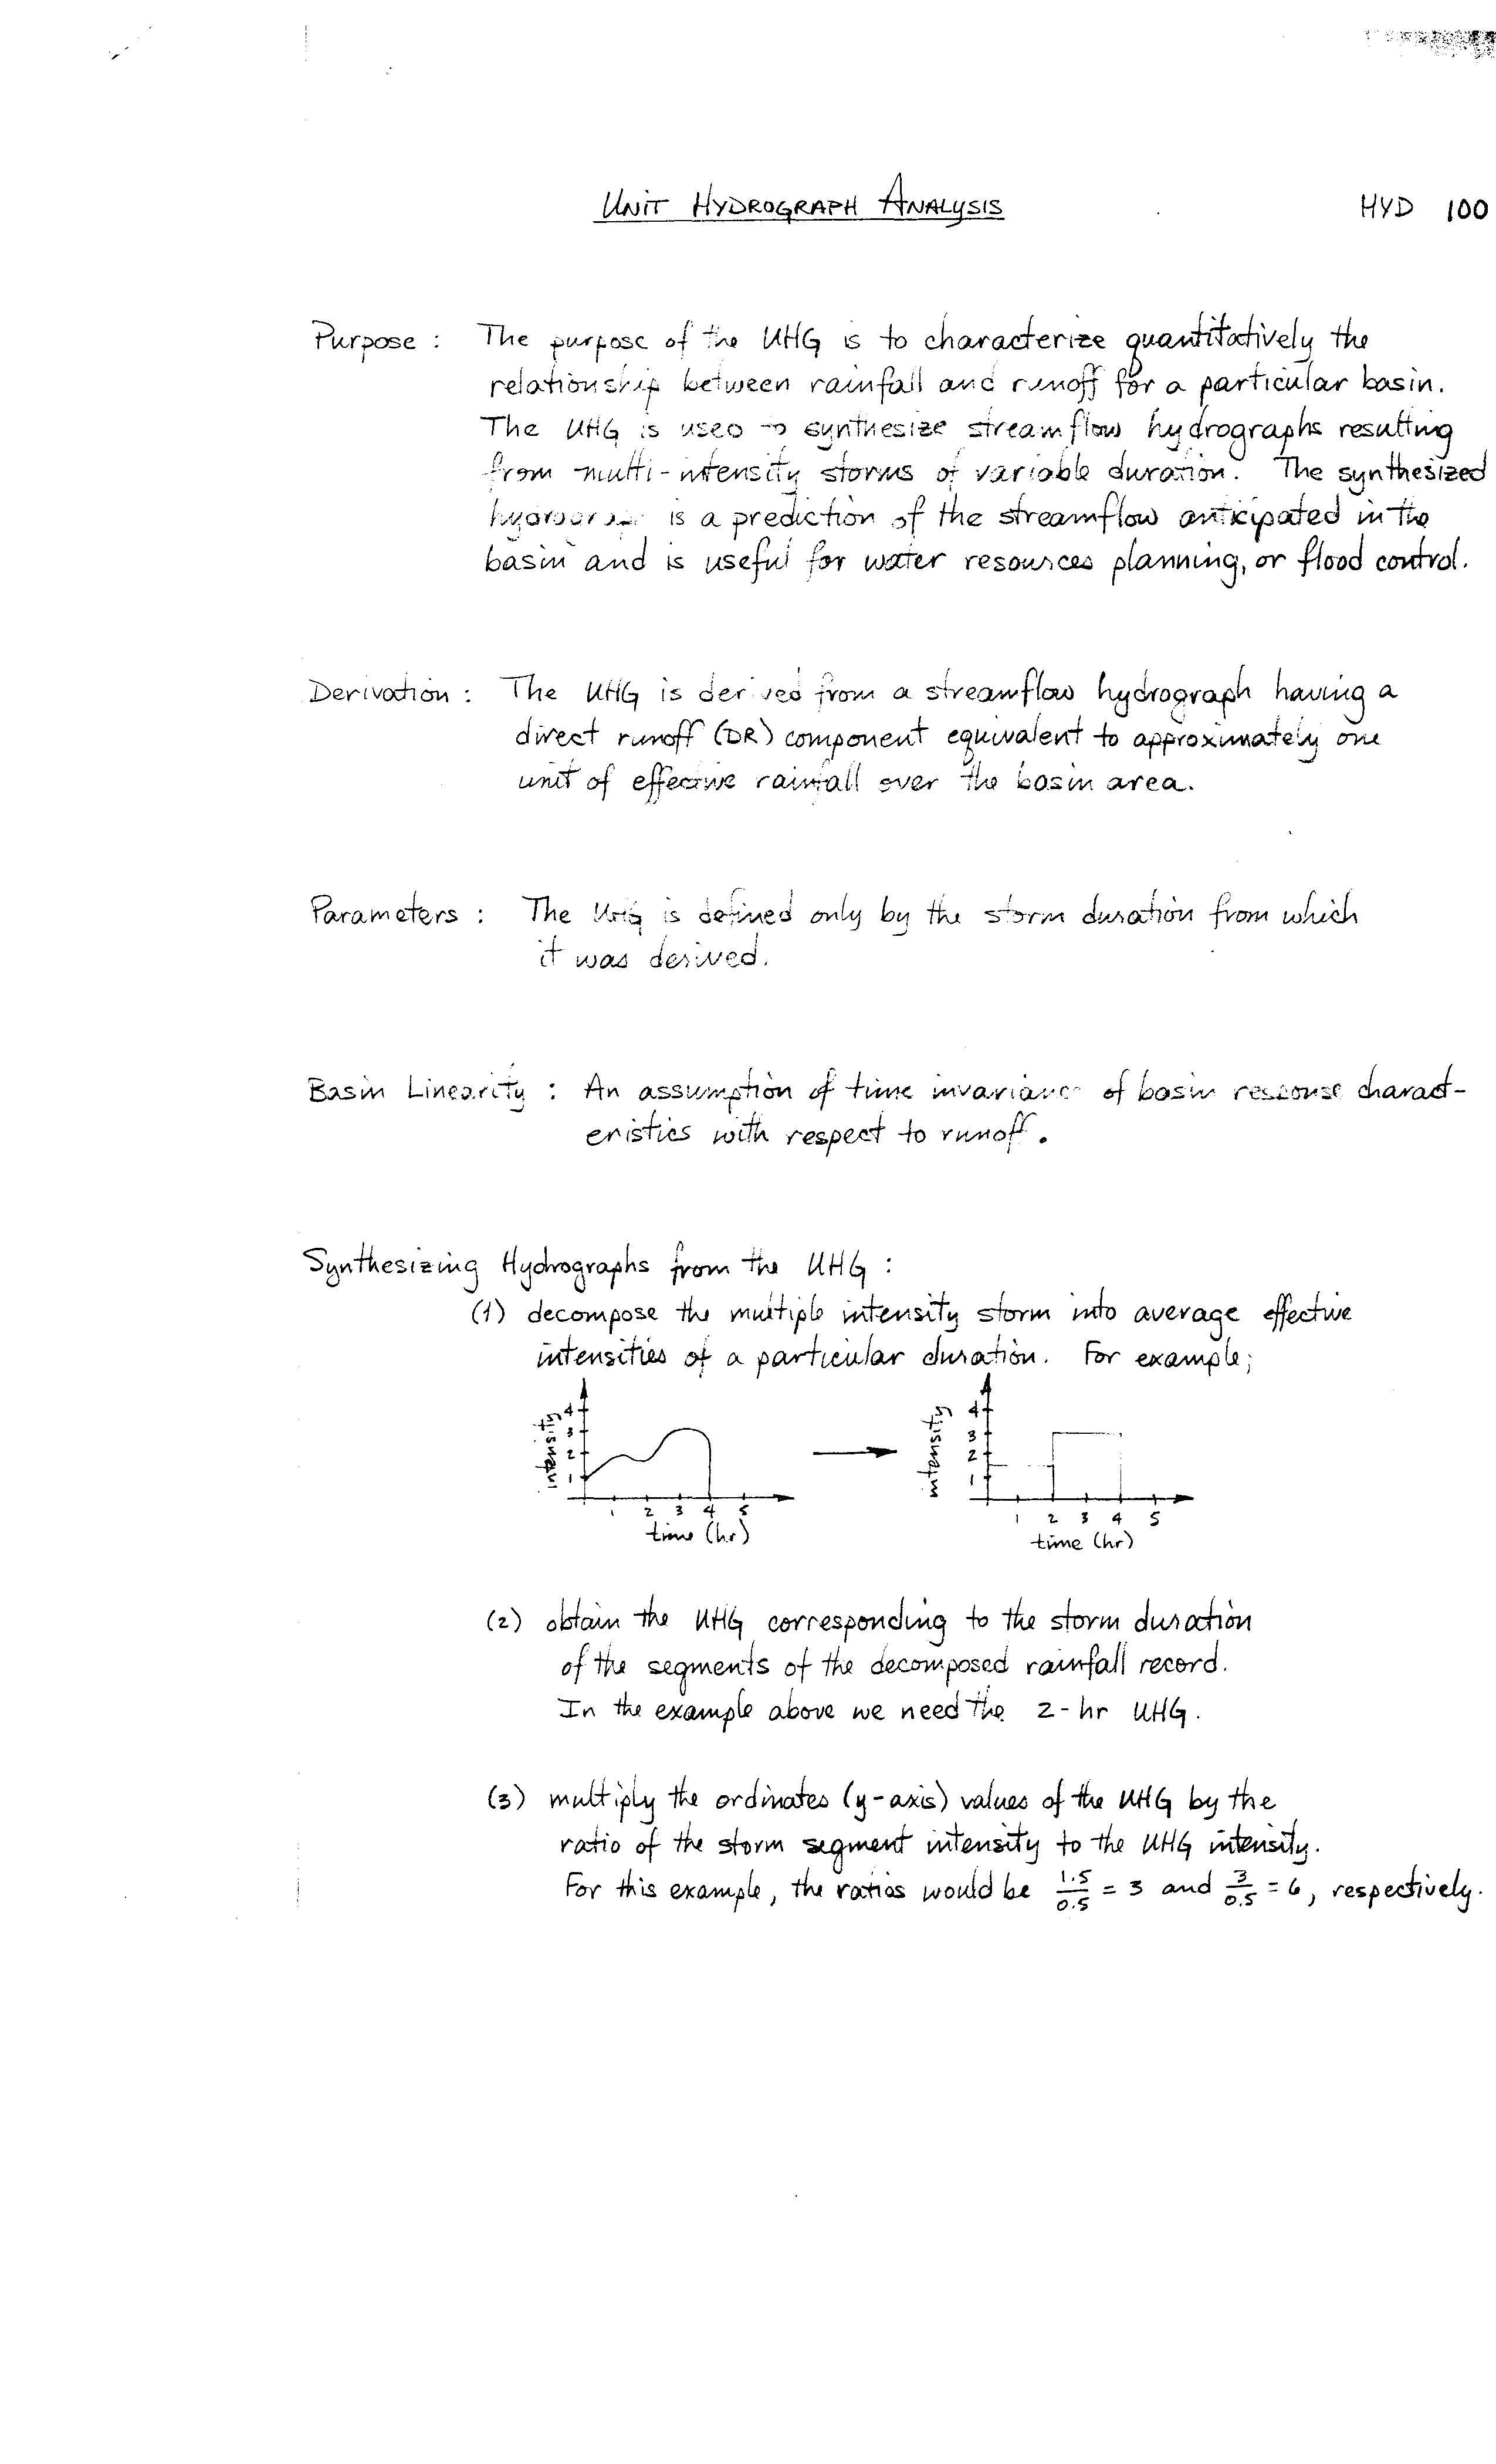 UNIT HYDROGRAPH ANALYSIS HYD 100
Purpose : The purpose of the UHG is to characterize quantitatively the
relationship between rainfall and runoff for a particular basin.
The UHG is used to synthesize streamflow hydrographs resulting
from multi-intensity storms of variable duration. The synthesized
is a prediction of the streamflow anticipated in the
basin and is useful for water resources planning, or flood control.
Derivation : The UHG is derived from a streamflow hydrograph having a
direct runoff (DR) component equivalent to approximately one
unit of effective rainfall over the basin area.
Parameters : The UHG is defined only by the storm duration from which
it was derived.
Basin Linearity : An assumption of time invariance of basin response charact-
eristics with respect to runoff.
Synthesizing Hydrographs from the UHG :
(1) decompose the multiple intensity storm into average effective
intensities of a particular duration. For example;
intensity 4 3 2 1
1 2 3 4 5
time (hr)
intensity 4 3 2 1
1 2 3 4 5
time (hr)
(2) obtain the UHG corresponding to the storm duration
of the segments of the decomposed rainfall record.
In the example above we need the 2-hr UHG.
(3) multiply the ordinates (y-axis) values of the UHG by the
ratio of the storm segment intensity to the UHG intensity.
For this example, the ratios would be 1.5/0.5 = 3 and 3/0.5 = 6, respectively.